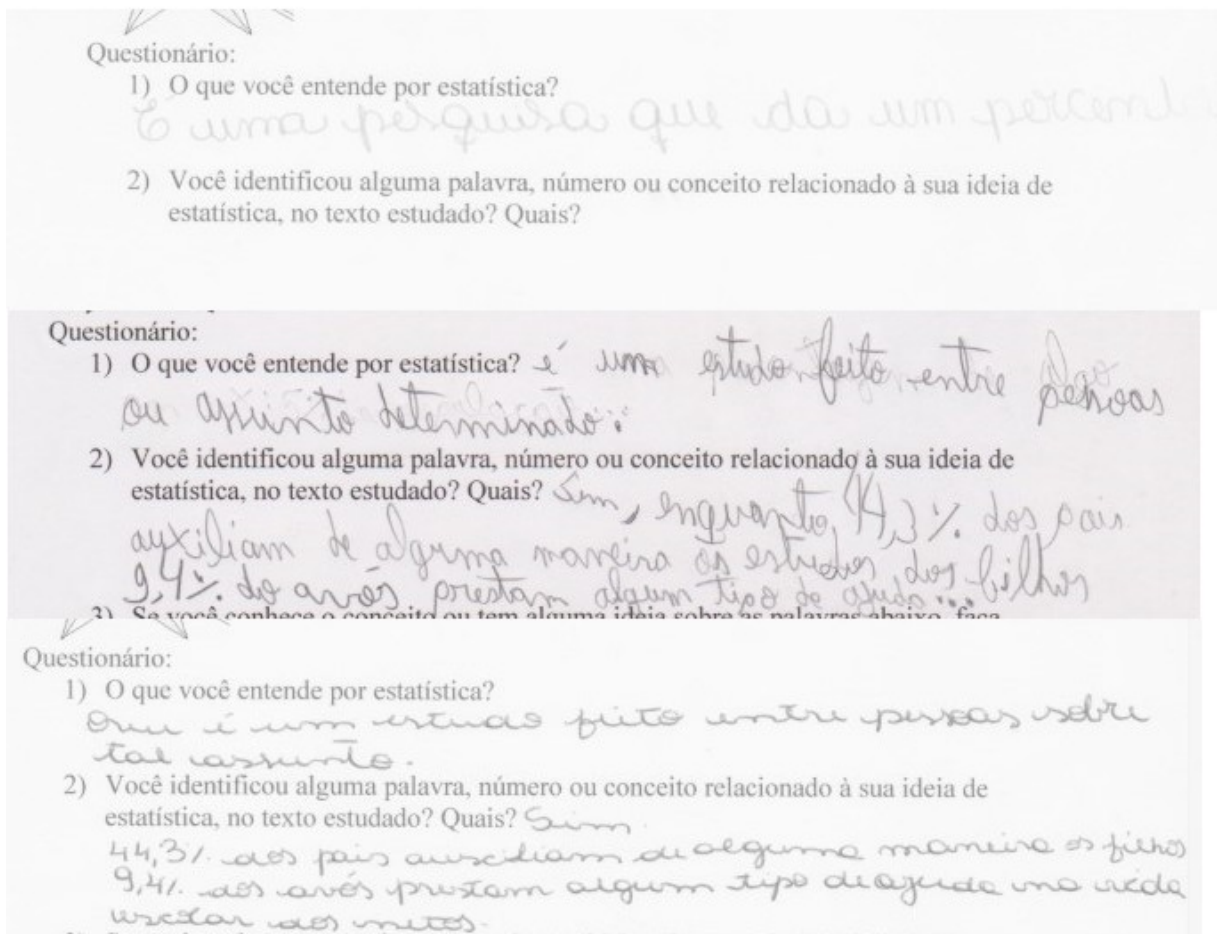 Questionário:
1) O que você entende por estatística?
É uma pesquisa que da um percent
2) Você identificou alguma palavra, número ou conceito relacionado à sua ideia de
estatística, no texto estudado? Quais?
Questionário:
1) O que você entende por estatística? é um estudo feito entre pessoas
ou assunto determinado.
2) Você identificou alguma palavra, número ou conceito relacionado à sua ideia de
estatística, no texto estudado? Quais? Sim, enquanto 44,3% dos pais
auxiliam de alguma maneira os estudos dos filhos
9,4% do avós prestam algum tipo de ajuda...
3) Se você conhece o conceito ou tem alguma ideia sobre as palavras abaixo, faça
Questionário:
1) O que você entende por estatística?
Que é um estudo feito entre pessoas sobre
tal assunto.
2) Você identificou alguma palavra, número ou conceito relacionado à sua ideia de
estatística, no texto estudado? Quais? Sim
44,3% dos pais auxiliam de alguma maneira os filhos
9,4% dos avós prestam algum tipo de ajuda na vida
escolar dos netos.